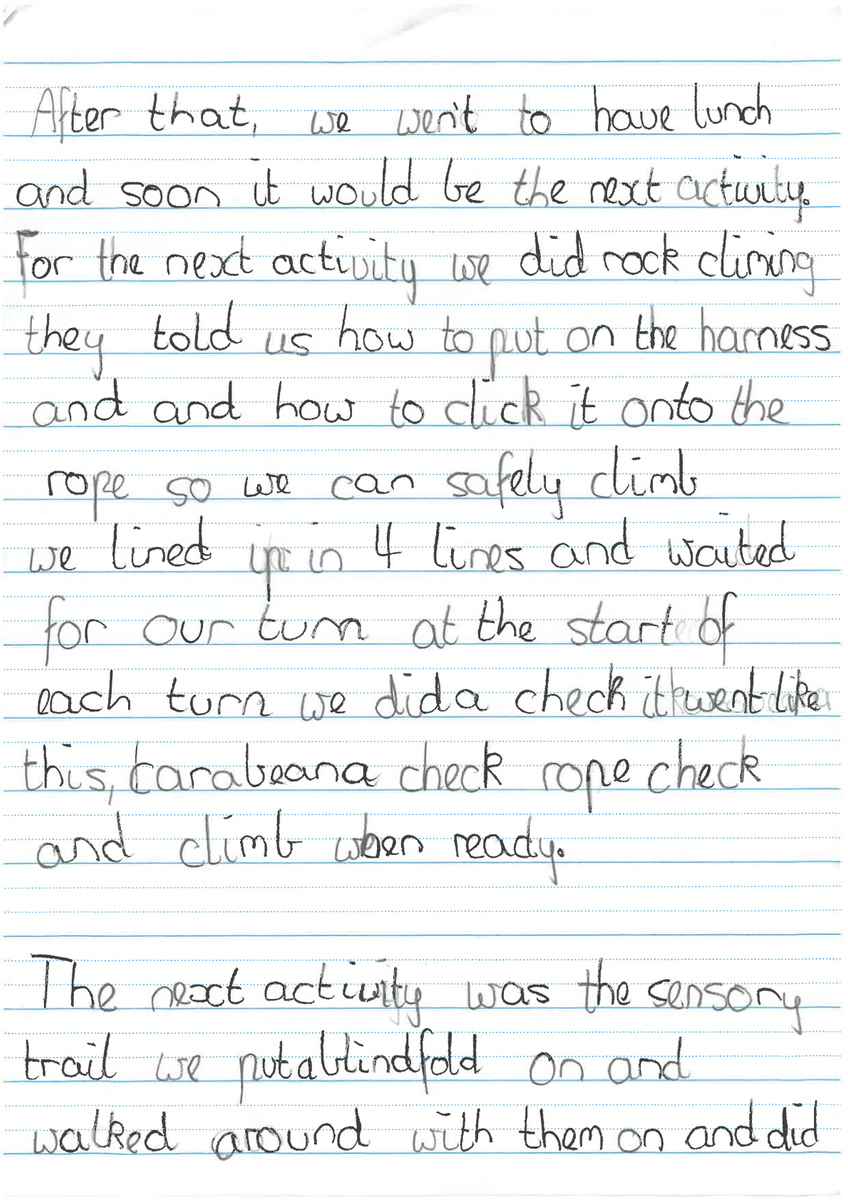 After that, we went to have lunch
and soon it would be the next activity.
For the next activity we did rock climing
they told us how to put on the harness
and and how to click it onto the
rope so we can safely climb
we lined up in 4 lines and waited
for our turn at the start of
each turn we did a check it went like
this, carabeana check rope check
and climb when ready.
The next activity was the sensory
trail we put a blindfold on and
walked around with them on and did